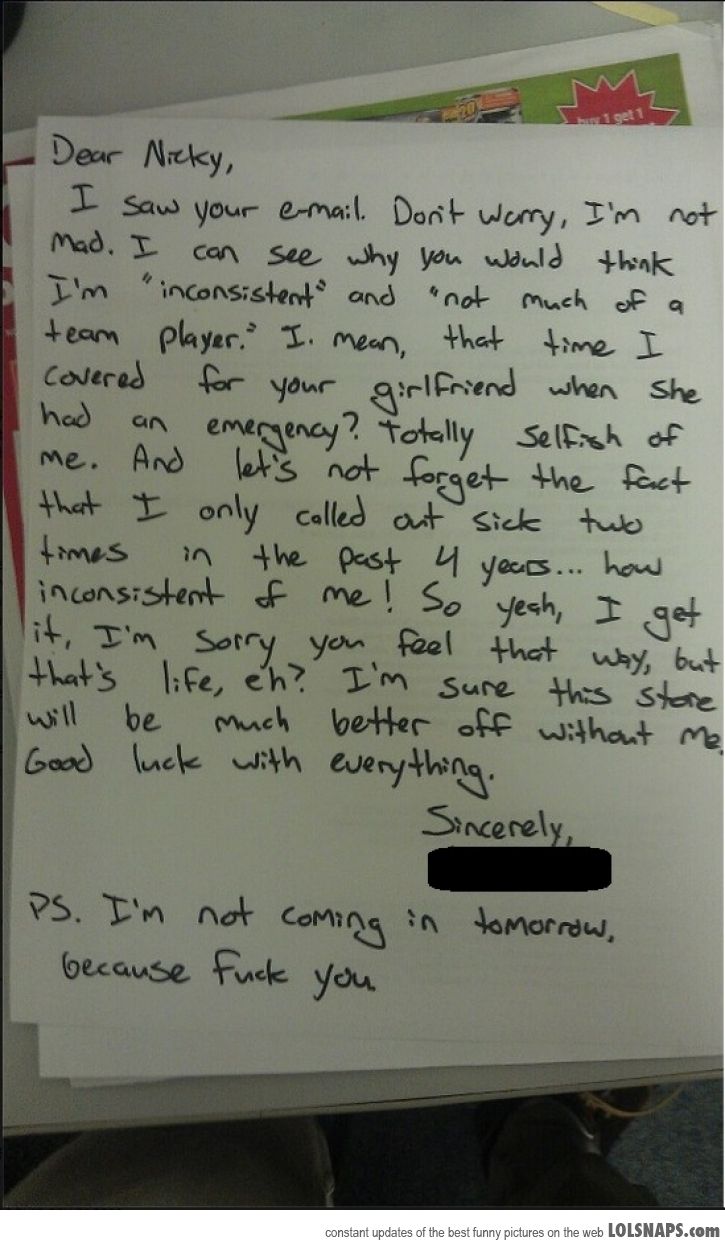 buy 1 get 1
Dear Nicky,
I saw your e-mail. Don't worry, I'm not
mad. I can see why you would think
I'm "inconsistent" and "not much of a
team player." I. mean, that time I
covered for your girlfriend when she
had an emergency? Totally selfish of
me. And let's not forget the fact
that I only called out sick two
times in the past 4 years... how
inconsistent of me! So yeah, I get
it, I'm sorry you feel that way, but
that's life, eh? I'm sure this store
will be much better off without me.
Good luck with everything.
Sincerely,
PS. I'm not coming in tomorrow,
because fuck you
constant updates of the best funny pictures on the web LOLSNAPS.com